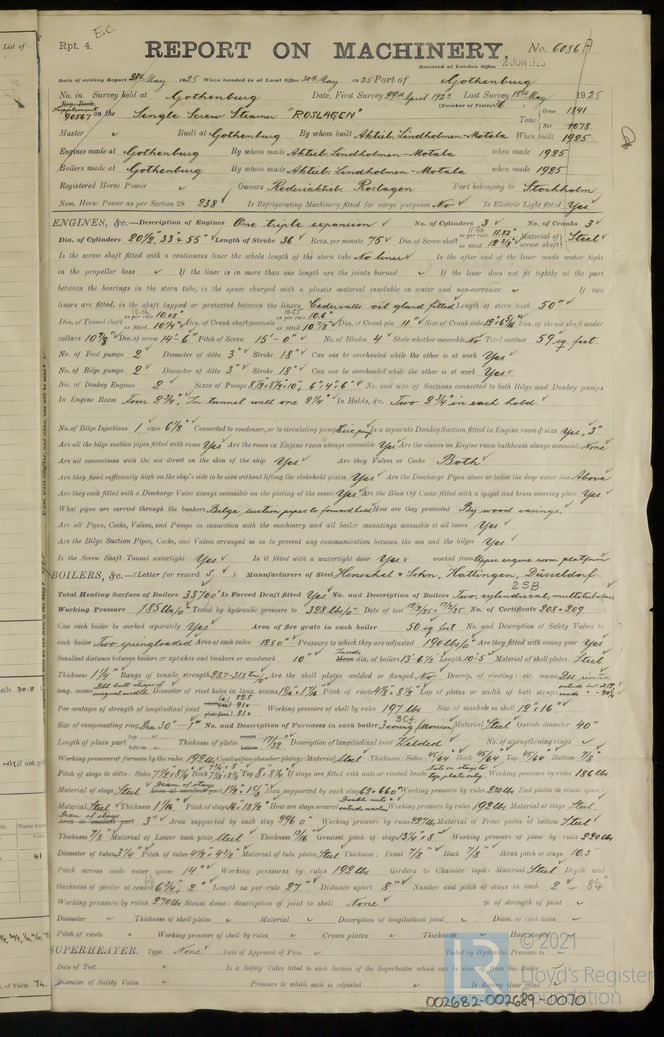 List of
Rpt. 4.
E.C.
REPORT ON MACHINERY.
No. 6086
Received at London Office 2 JUN 1925
Date of writing Report 28th May 1925 When handed in at Local Office 30th May 1925 Port of Gothenburg
No. in Survey held at Gothenburg Date, First Survey 29th April 1922 Last Survey 15th May 1925
Reg. Book. (Number of Visits
Supplement 90567 on the Single Screw Steamer "ROSLAGEN" Tons Gross 1841 Net 1078
Master Built at Gothenburg By whom built Aktieb. Lindholmen-Motala When built 1925
Engines made at Gothenburg By whom made Aktieb. Lindholmen-Motala when made 1925
Boilers made at Gothenburg By whom made Aktieb. Lindholmen-Motala when made 1925
Registered Horse Power Owners Rederiaktieb. Roslagen Port belonging to Stockholm
Nom. Horse Power as per Section 28 238 Is Refrigerating Machinery fitted for cargo purposes No Is Electric Light fitted Yes
ENGINES, &c.—Description of Engines One triple expansion No. of Cylinders 3 No. of Cranks 3
Dia. of Cylinders 20½", 33" & 55" Length of Stroke 36 Revs. per minute 75 Dia. of Screw shaft as per rule 11.82" as fitted 12¾" Material of screw shaft Steel
Is the screw shaft fitted with a continuous liner the whole length of the stern tube No liner Is the after end of the liner made water tight
in the propeller boss If the liner is in more than one length are the joints burned If the liner does not fit tightly at the part
between the bearings in the stern tube, is the space charged with a plastic material insoluble in water and non-corrosive If two
liners are fitted, is the shaft lapped or protected between the liners Cedervalls oil gland fitted Length of stern bush 50"
Dia. of Tunnel shaft as per rule 10.08" as fitted 10¼" Dia. of Crank shaft journals as per rule 10.6" as fitted 10⅞" Dia. of Crank pin 11" Size of Crank webs Dia. of thrust shaft under
collars 10⅞" Dia. of screw 14'-6" Pitch of Screw 15'-0" No. of Blades 4 State whether moveable No Total surface 59 sq. feet.
No. of Feed pumps 2 Diameter of ditto 3" Stroke 18" Can one be overhauled while the other is at work Yes
No. of Bilge pumps 2 Diameter of ditto 3" Stroke 18" Can one be overhauled while the other is at work Yes
No. of Donkey Engines 2 Sizes of Pumps No. and size of Suctions connected to both Bilge and Donkey pumps
In Engine Room Four 2¾", In tunnel well one 2¼" In Holds, &c. Two 2¾" in each hold
No. of Bilge Injections 1 sizes 6½" Connected to condenser, or to circulating pump Is a separate Donkey Suction fitted in Engine room & size Yes, 3"
Are all the bilge suction pipes fitted with roses Yes Are the roses in Engine room always accessible Yes Are the sluices on Engine room bulkheads always accessible None
Are all connections with the sea direct on the skin of the ship Yes Are they Valves or Cocks Both
Are they fixed sufficiently high on the ship's side to be seen without lifting the stokehold plates Yes Are the Discharge Pipes above or below the deep water line Above
Are they each fitted with a Discharge Valve always accessible on the plating of the vessel Yes Are the Blow Off Cocks fitted with a spigot and brass covering plate Yes
What pipes are carried through the bunkers Bilge suction pipes to forward hold How are they protected By wood casings.
Are all Pipes, Cocks, Valves, and Pumps in connection with the machinery and all boiler mountings accessible at all times Yes
Are the Bilge Suction Pipes, Cocks, and Valves arranged so as to prevent any communication between the sea and the bilges Yes
Is the Screw Shaft Tunnel watertight Yes Is it fitted with a watertight door Yes worked from Upper engine room platform
BOILERS, &c.—(Letter for record S) Manufacturers of Steel Henschel & Sohn, Hattingen, Düsseldorf
2 SB
Total Heating Surface of Boilers 3370 Is Forced Draft fitted Yes No. and Description of Boilers Two, cylindrical, multitubular
Working Pressure 185 lbs Tested by hydraulic pressure to 328 lbs Date of test No. of Certificate 208 & 209
Can each boiler be worked separately Yes Area of fire grate in each boiler 50 sq. feet No. and Description of Safety Valves to
each boiler Two springloaded Area of each valve Pressure to which they are adjusted 190 lbs Are they fitted with easing gear Yes
Smallest distance between boilers or uptakes and bunkers or woodwork 10" Inside dia. of boilers 13'-6½" Length 10'-5 Material of shell plates Steel
Thickness 1¼" Range of tensile strength Are the shell plates welded or flanged No Descrip. of riveting: cir. seams
long. seams Diameter of rivet holes in long. seams Pitch of rivets Lap of plates or width of butt straps
Per centages of strength of longitudinal joint Working pressure of shell by rules 197 lbs Size of manhole in shell 12" x 16"
Size of compensating ring No. and Description of Furnaces in each boiler Material Steel Outside diameter 40"
Length of plain part Thickness of plates 17/32 Description of longitudinal joint Welded No. of strengthening rings
Working pressure of furnace by the rules 192 lbs Combustion chamber plates: Material Steel Thickness: Sides 45/64 Back 45/64 Top 45/64 Bottom 7/8"
Pitch of stays to ditto: Sides Back Top If stays are fitted with nuts or riveted heads Working pressure by rules 186 lbs
Material of stays Steel Area supported by each stay Working pressure by rules End plates in steam space
Material Steel Thickness 1 1/16" Pitch of stays How are stays secured Double nuts Working pressure by rules 192 lbs Material of stays Steel
3" Area supported by each stay Working pressure by rules 227 lbs Material of Front plates at bottom Steel
Thickness 7/8" Material of Lower back plate Steel Thickness Greatest pitch of stays Working pressure of plate by rules 220 lbs
Diameter of tubes 3¼" Pitch of tubes Material of tube plates Steel Thickness: Front 7/8" Back 7/8" Mean pitch of stays 10.3
Pitch across wide water spaces 14" Working pressures by rules 192 lbs Girders to Chamber tops: Material Steel Depth and
thickness of girder at centre Length as per rule 27" Distance apart 8" Number and pitch of stays in each
Working pressure by rules 270 lbs Steam dome: description of joint to shell None % of strength of joint
Diameter Thickness of shell plates Material Description of longitudinal joint Diam. of rivet holes
Pitch of rivets Working pressure of shell by rules Crown plates Thickness How stayed
SUPERHEATER. Type None Date of Approval of Plan Tested by Hydraulic Pressure to
Date of Test Is a Safety Valve fitted to each Section of the Superheater which can be shut off from the Boiler
Diameter of Safety Valve Pressure to which each is adjusted Is Easing Gear fitted
LR
© 2021
Lloyd's Register
Foundation
002682-002689-0070